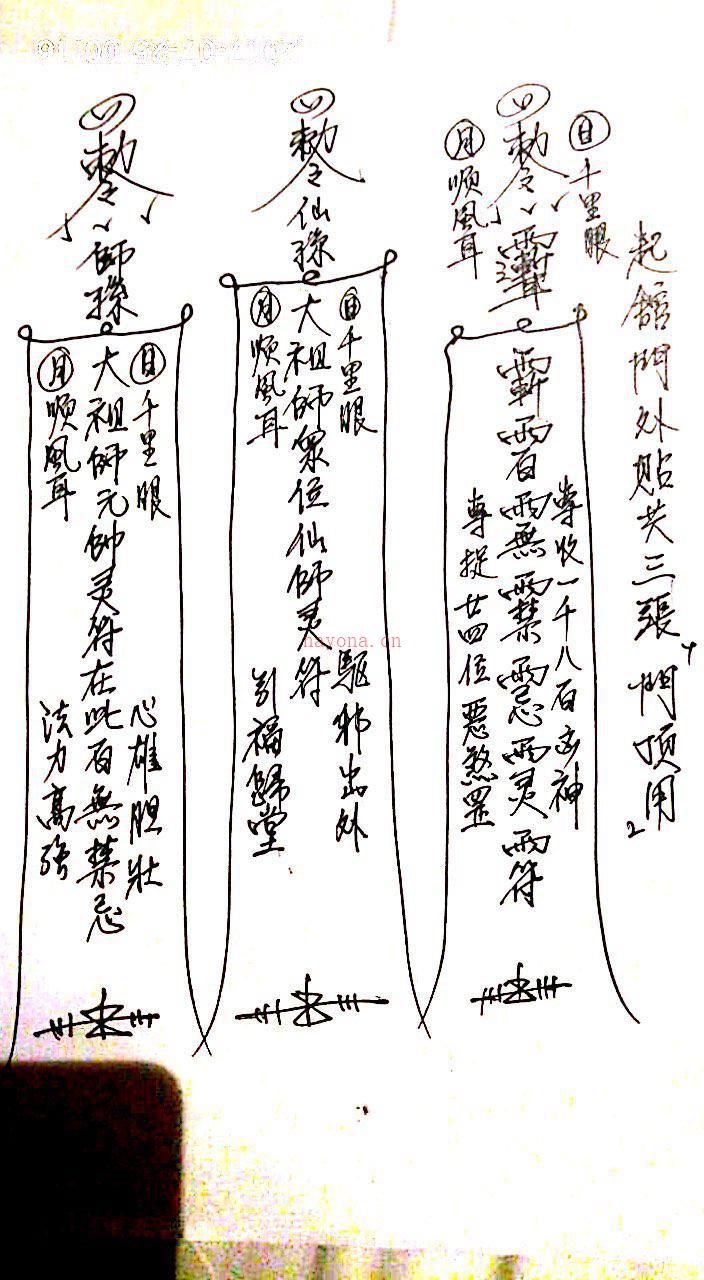 起舘門外貼共三張門頂用
日千里眼
敕令
月順風耳
專收一千八百凶神
專捉廿四位惡煞罡
敕令仙
日千里眼
大祖師眾位仙師灵符
月順風耳
驅邪出外
引福歸堂
敕令
師
日千里眼
大祖師元帥灵符在此百無禁忌
月順風耳
心雄胆壯
法力高強
nayona.cn